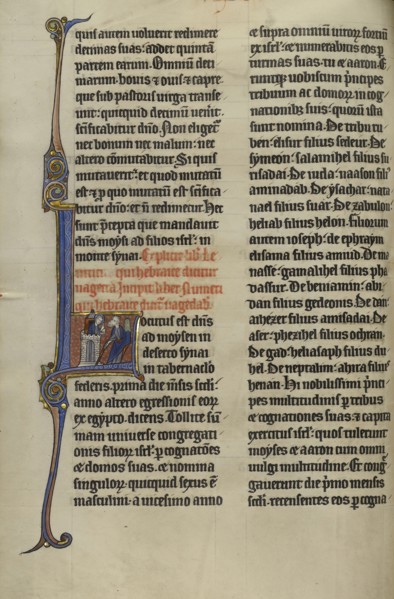 quis autem voluerit redimere
decimas suas: addet quintā
partem earum. Omniū deci
marum. bouis & ouis & capre
que sub pastoris uirga transe
unt: quicquid decimū uenit:
sctificabitur dn̄o. Non eliget̄
nec bonum nec malum: nec
altero cōmutabitur. Si quis
mutauerit: et quod mutatū
est & p quo mutatū est sctifica
bitur dn̄o: et n̄ redimetur. Hec
sunt p̄cepta que mandauit
dn̄s moysi ad filios isrl̄: in
monte synai.
Locutus est dn̄s
ad moysen in
deserto synai
in tabernac̄lo
federis. prima die m̄sis scd̄i.
anno altero egressionis eor̄
ex egypto. dicens. Tollite sū
mam uniuerse congregati
onis filior̄ isrl̄. p cognatōes
& domos suas. & nomina
singulor̄. quicquid sexus ē
masculini. a uicesimo anno
& supra omnium uiror̄ fortiū
ex isrl̄: & numerabitis eos p
turmas suas. tu & aaron. E
runtq; uobiscum p̄ncipes
tribuum ac domor̄ in cog
nationib; suis. quor̄ ista
sunt nomina. De tribu ru
ben. elisur filius sedeur. De
symeon. salamihel filius su
risadai. De iuda. naason fili'
aminadab. De ysachar. nata
nael filius suar. De zabulon.
heliab filius helon. Filiorum
autem ioseph. de ephraym
elisama filius amiud. De ma
nasse. gamalihel filius pha
dassur. De beniamin. abi
dan filius gedeonis. De dan.
aihezer filius amisadai. De
aser. phezihel filius ochran.
De gad. heliasaph filius du
hel. De neptalim. ahira filius
henan. Hi nobilissimi p̄nci
pes multitudinis p tribus
& cognationes suas. & capita
exercitus isrl̄. quos tulerunt
moyses & aaron cum omni
uulgi multitudine. Et conḡ
gauerunt die p̄mo mensis
scd̄i. recensentes eos p cogna